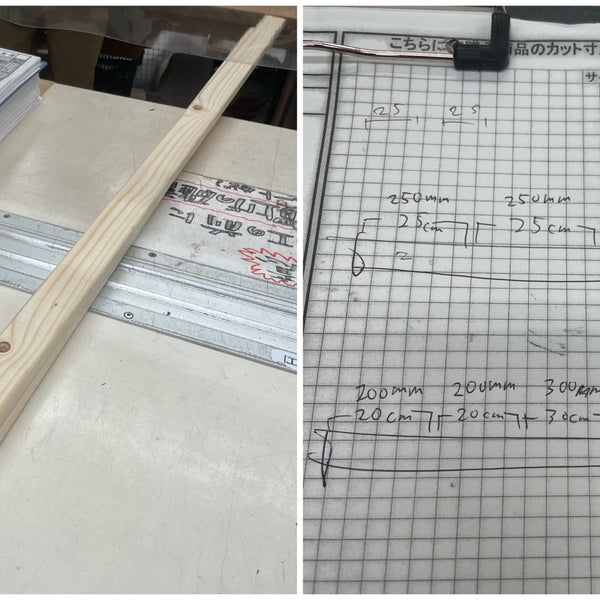 こちらに
商品のカット寸
サ
25 25
250mm 250mm
25cm 25cm
2
200mm 200mm 300mm
20cm 20cm 30cm
の前に